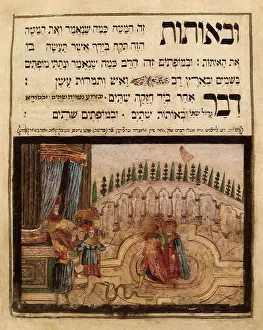 ובאותות זה המטה כמה שנאמר ואת המטה
הזה תקח בידך אשר תעשה בו
את האותות: ובמופתים זה הדם כמה שנאמר ונתתי מופתים
בשמים ובארץ דם ואש ותמרות עשן:
דבר אחר ביד חזקה שתים: ובזרוע נטויה שתים: ובמורא
גדול שתים: ובאותות שתים: ובמופתים שתים: